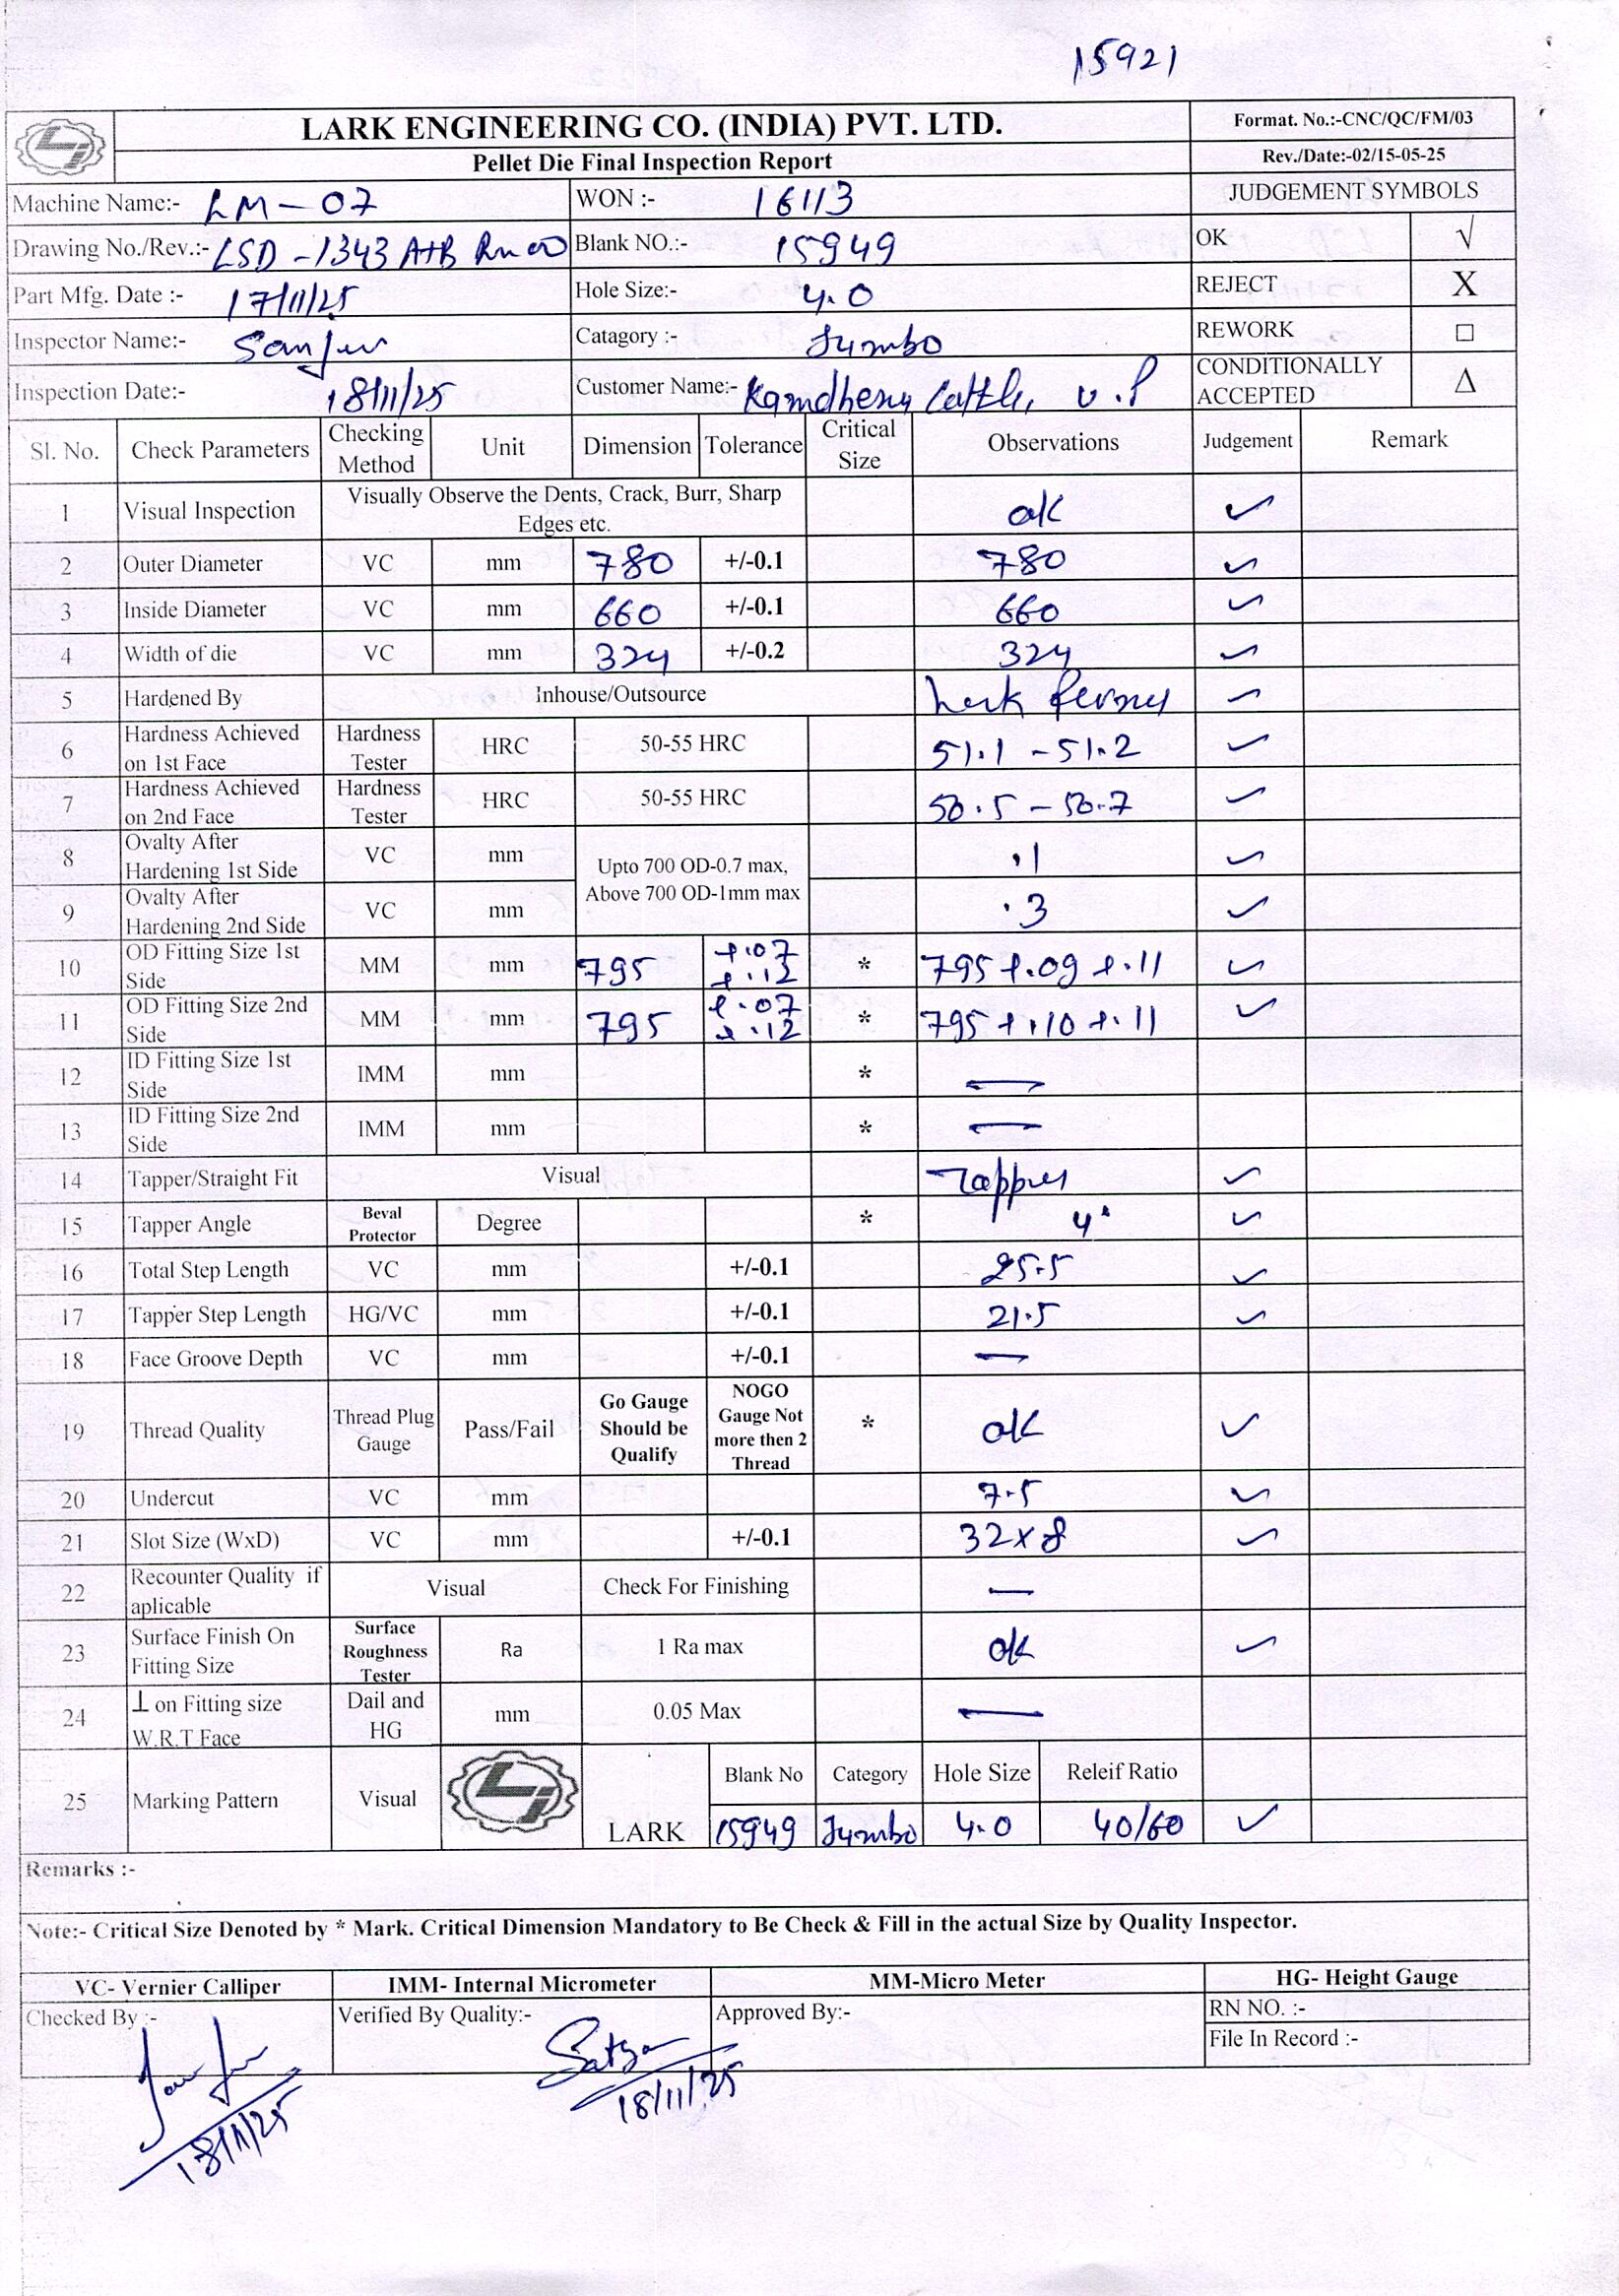 15921
LARK ENGINEERING CO. (INDIA) PVT. LTD.
Format. No.:-CNC/QC/FM/03
Pellet Die Final Inspection Report
Rev./Date:-02/15-05-25
Machine Name:- LM-07 WON :- 16113 JUDGEMENT SYMBOLS
Drawing No./Rev.:- LSD-1343 A+B Blank NO.:- 15949 OK √
Part Mfg. Date :- 17/11/25 Hole Size:- 4.0 REJECT X
Inspector Name:- Catagory :- Jumbo REWORK □
Inspection Date:- 18/11/25 Customer Name:- Kamdhenu Cattle, U.P CONDITIONALLY ACCEPTED Δ
Sl. No. Check Parameters Checking Method Unit Dimension Tolerance Critical Size Observations Judgement Remark
1 Visual Inspection Visually Observe the Dents, Crack, Burr, Sharp Edges etc. ok ✓
2 Outer Diameter VC mm 780 +/-0.1 780 ✓
3 Inside Diameter VC mm 660 +/-0.1 660 ✓
4 Width of die VC mm 324 +/-0.2 324 ✓
5 Hardened By Inhouse/Outsource ✓
6 Hardness Achieved on 1st Face Hardness Tester HRC 50-55 HRC 51.1 - 51.2 ✓
7 Hardness Achieved on 2nd Face Hardness Tester HRC 50-55 HRC 50.5 - 50.7 ✓
8 Ovalty After Hardening 1st Side VC mm Upto 700 OD-0.7 max, Above 700 OD-1mm max .1 ✓
9 Ovalty After Hardening 2nd Side VC mm .3 ✓
10 OD Fitting Size 1st Side MM mm 795 +.07 +.12 * 795 +.09 +.11 ✓
11 OD Fitting Size 2nd Side MM mm 795 +.07 +.12 * 795 +.10 +.11 ✓
12 ID Fitting Size 1st Side IMM mm * —
13 ID Fitting Size 2nd Side IMM mm * —
14 Tapper/Straight Fit Visual Tapper ✓
15 Tapper Angle Beval Protector Degree * 4° ✓
16 Total Step Length VC mm +/-0.1 25.5 ✓
17 Tapper Step Length HG/VC mm +/-0.1 21.5 ✓
18 Face Groove Depth VC mm +/-0.1 —
19 Thread Quality Thread Plug Gauge Pass/Fail Go Gauge Should be Qualify NOGO Gauge Not more then 2 Thread * ok ✓
20 Undercut VC mm 7.5 ✓
21 Slot Size (WxD) VC mm +/-0.1 32x8 ✓
22 Recounter Quality if aplicable Visual Check For Finishing —
23 Surface Finish On Fitting Size Surface Roughness Tester Ra 1 Ra max ok ✓
24 ⊥ on Fitting size W.R.T Face Dail and HG mm 0.05 Max —
25 Marking Pattern Visual LARK Blank No Category Hole Size Releif Ratio
15949 Jumbo 4.0 40/60 ✓
Remarks :-
Note:- Critical Size Denoted by * Mark. Critical Dimension Mandatory to Be Check & Fill in the actual Size by Quality Inspector.
VC- Vernier Calliper IMM- Internal Micrometer MM-Micro Meter HG- Height Gauge
Checked By :- Verified By Quality:- Approved By:- RN NO. :-
File In Record :-
18/11/25 18/11/25